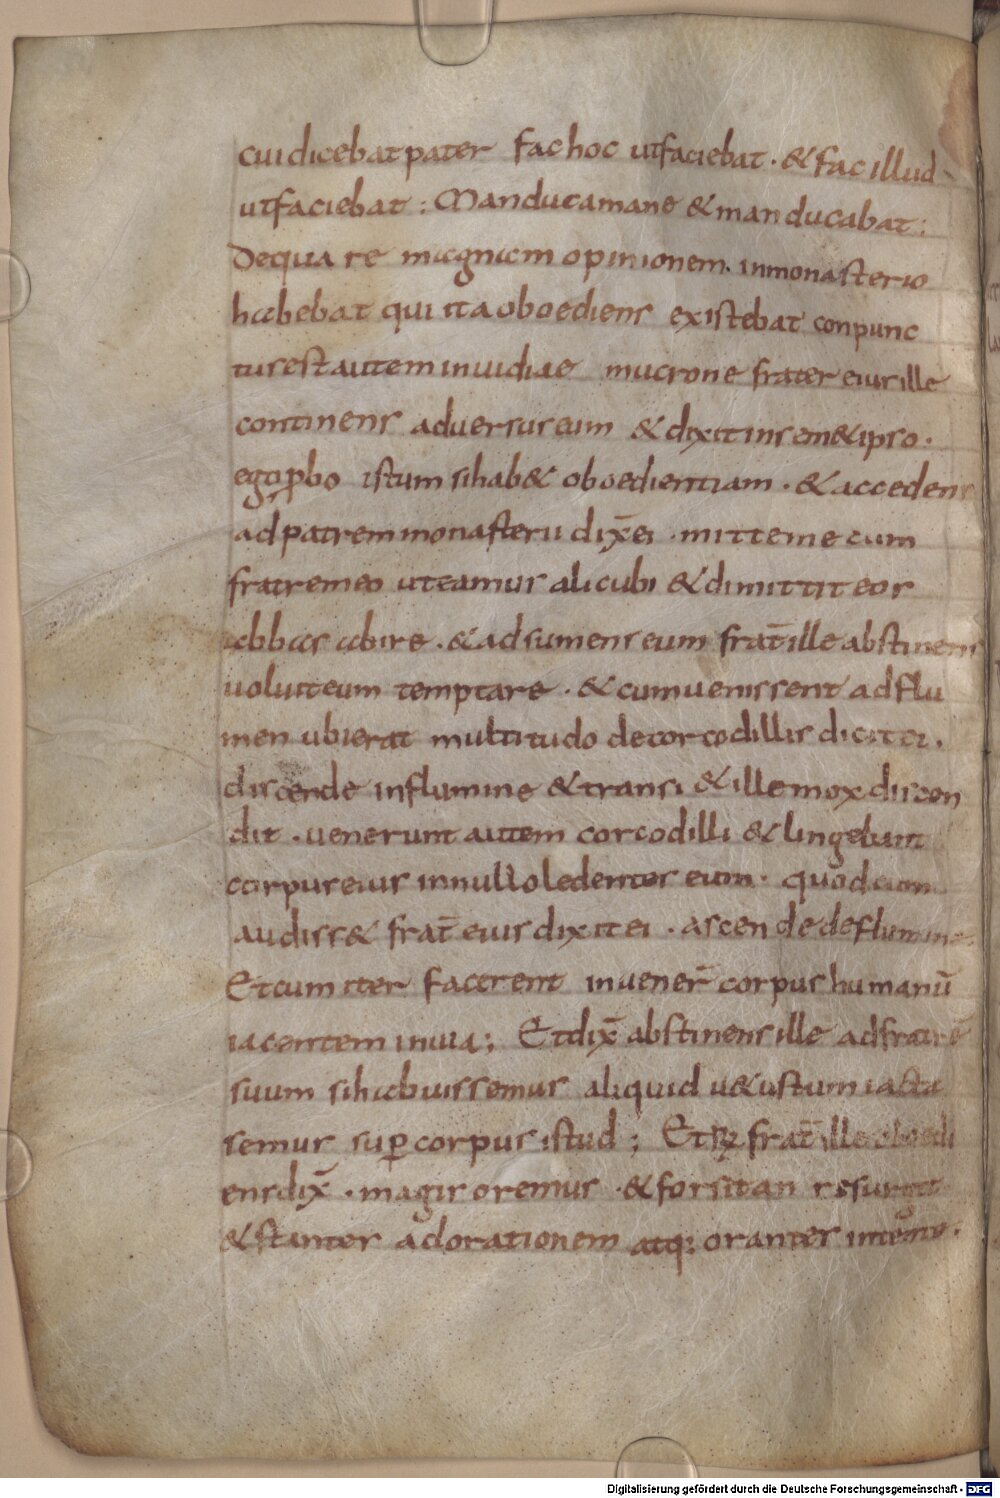 cui dicebat pater fac hoc ut faciebat · & fac illud
ut faciebat : Manduca mane & manducabat :
De qua re magnam opinionem · in monasterio
habebat qui ita oboediens existebat conpunc
tus est autem invidiae mucrone frater eius ille
continens adversus eum & dixit in sem&ipso ·
ego p̱bo istum si hab& oboedientiam · & accedens
ad patrem monasterii dix̄ ei · mitte me cum
fratre meo ut eamus alicubi & dimittit eos
abbas abire · & adsumens eum frat̄ ille abstinens
voluit eum temptare · & cum venissent ad flu
men ubi erat multitudo de corcodillis dicit ei ·
discende in flumine & transi & ille mox discen
dit · venerunt autem corcodilli & lingebant
corpus eius in nullo ledentes eum · quod cum
audiss& frat̄ eius dixit ei · ascende de flumine ·
Et cum iter facerent invener̄ corpus humanū
iacentem in via ; Et dix̄ abstinens ille ad fratrē
suum si habuissemus aliquid v&ustum iacta
semus sup̱ corpus istud ; Et frat̄ ille oboedi
ens dix̄ · magis oremus · & forsitan resurgit
& stantes ad orationem atq: orantes intente ·
Digitalisierung gefördert durch die Deutsche Forschungsgemeinschaft - DFG